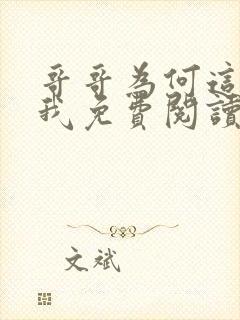 哥哥為何這
我免費閱讀
文斌